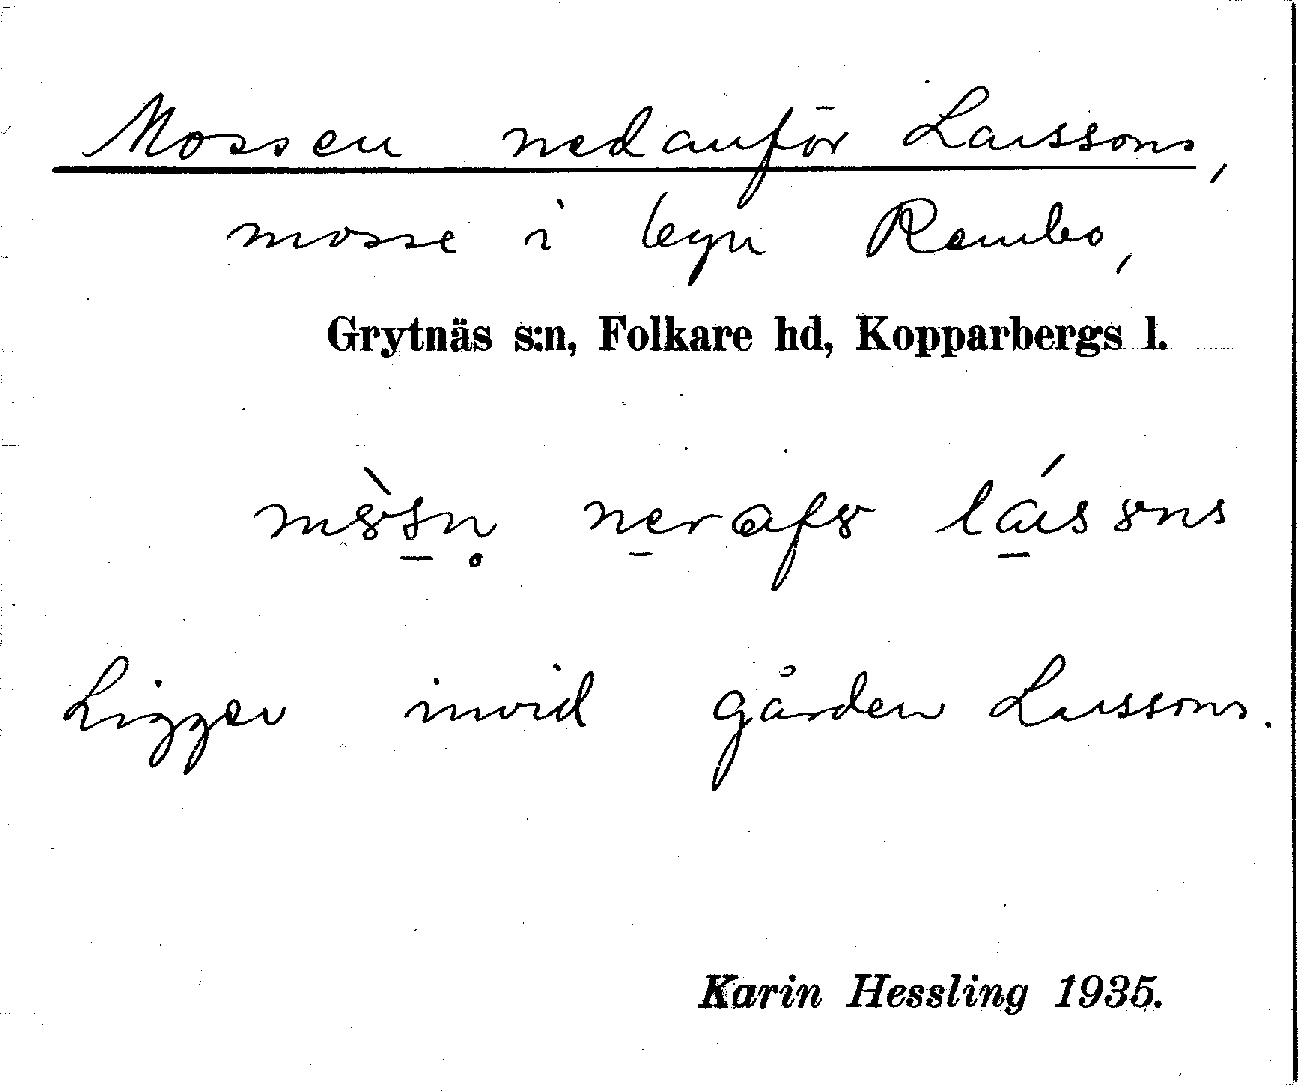 Mossen nedanför Larssons,
mosse i byn Rembo,
Grytnäs s:n, Folkare hd, Kopparbergs l.
m8̀sn̥ neraf8 lás8ns
Ligger invid gården Larssons.
Karin Hessling 1935.